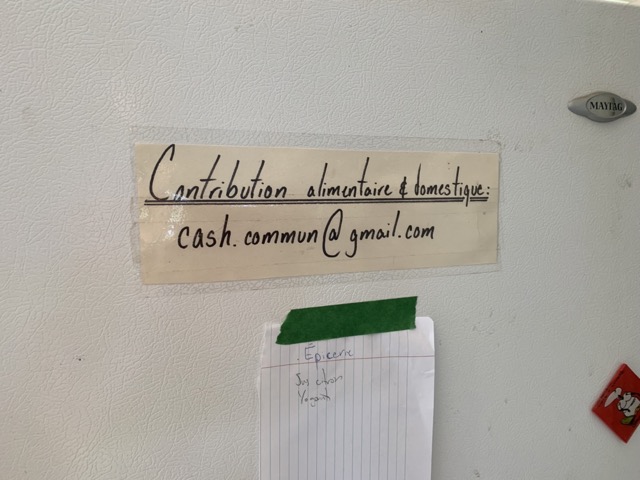 MAYTAG
Contribution alimentaire & domestique:
cash.commun@gmail.com
Épicerie
Jus citron
Yogourt